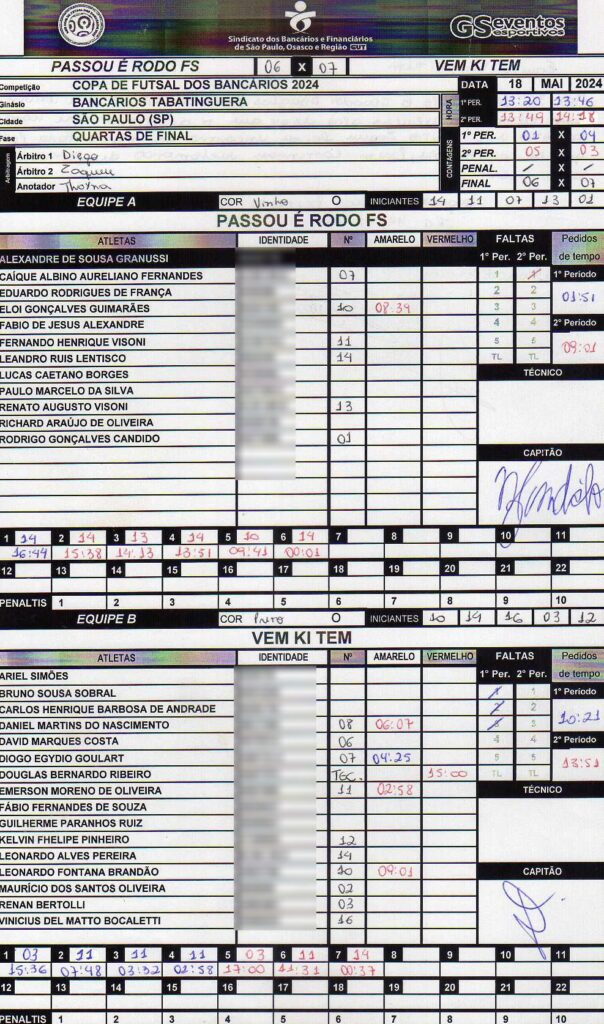 Sindicato dos Bancários e Financiários
de São Paulo, Osasco e Região CUT
GSeventos
esportivos
PASSOU É RODO FS 06 X 07 VEM KI TEM
Competição COPA DE FUTSAL DOS BANCÁRIOS 2024 DATA 18 MAI 2024
Ginásio BANCÁRIOS TABATINGUERA HORA 1º PER. 13:20 13:46
Cidade SÃO PAULO (SP) 2º PER. 13:49 14:18
Fase QUARTAS DE FINAL CONTAGENS 1º PER. 01 X 04
Arbitragem Árbitro 1 Diego 2º PER. 05 X 03
Árbitro 2 PENAL. / X /
Anotador FINAL 06 X 07
EQUIPE A COR Vinho O INICIANTES 14 11 07 13 01
PASSOU É RODO FS
ATLETAS IDENTIDADE Nº AMARELO VERMELHO FALTAS Pedidos de tempo
1º Per. 2º Per.
ALEXANDRE DE SOUSA GRANUSSI
CAÍQUE ALBINO AURELIANO FERNANDES 07 1 1 1º Período
EDUARDO RODRIGUES DE FRANÇA 2 2 01:51
ELOI GONÇALVES GUIMARÃES 10 08:39 3 3
FABIO DE JESUS ALEXANDRE 4 4 2º Período
FERNANDO HENRIQUE VISONI 11 5 5 09:01
LEANDRO RUIS LENTISCO 14 TL TL
LUCAS CAETANO BORGES TÉCNICO
PAULO MARCELO DA SILVA
RENATO AUGUSTO VISONI 13
RICHARD ARAÚJO DE OLIVEIRA
RODRIGO GONÇALVES CANDIDO 01
CAPITÃO
1 14 2 14 3 13 4 14 5 10 6 14 7 8 9 10 11
16:44 15:38 14:13 13:51 09:41 00:01
12 13 14 15 16 17 18 19 20 21 22
PENALTIS 1 2 3 4 5 6 7 8 9 10
EQUIPE B COR Preto O INICIANTES 10 14 16 03 12
VEM KI TEM
ATLETAS IDENTIDADE Nº AMARELO VERMELHO FALTAS Pedidos de tempo
1º Per. 2º Per.
ARIEL SIMÕES
BRUNO SOUSA SOBRAL 1 1 1º Período
CARLOS HENRIQUE BARBOSA DE ANDRADE 2 2
DANIEL MARTINS DO NASCIMENTO 08 06:07 3 3 10:21
DAVID MARQUES COSTA 06 4 4 2º Período
DIOGO EGYDIO GOULART 07 04:25 5 5 13:51
DOUGLAS BERNARDO RIBEIRO TEC. 15:00 TL TL
EMERSON MORENO DE OLIVEIRA 11 02:58 TÉCNICO
FÁBIO FERNANDES DE SOUZA
GUILHERME PARANHOS RUIZ
KELVIN FHELIPE PINHEIRO 12
LEONARDO ALVES PEREIRA 14
LEONARDO FONTANA BRANDÃO 10 09:01 CAPITÃO
MAURÍCIO DOS SANTOS OLIVEIRA 02
RENAN BERTOLLI 03
VINICIUS DEL MATTO BOCALETTI 16
1 03 2 11 3 11 4 11 5 03 6 11 7 14 8 9 10 11
15:36 07:48 03:32 02:58 17:00 11:31 00:37
12 13 14 15 16 17 18 19 20 21 22
PENALTIS 1 2 3 4 5 6 7 8 9 10